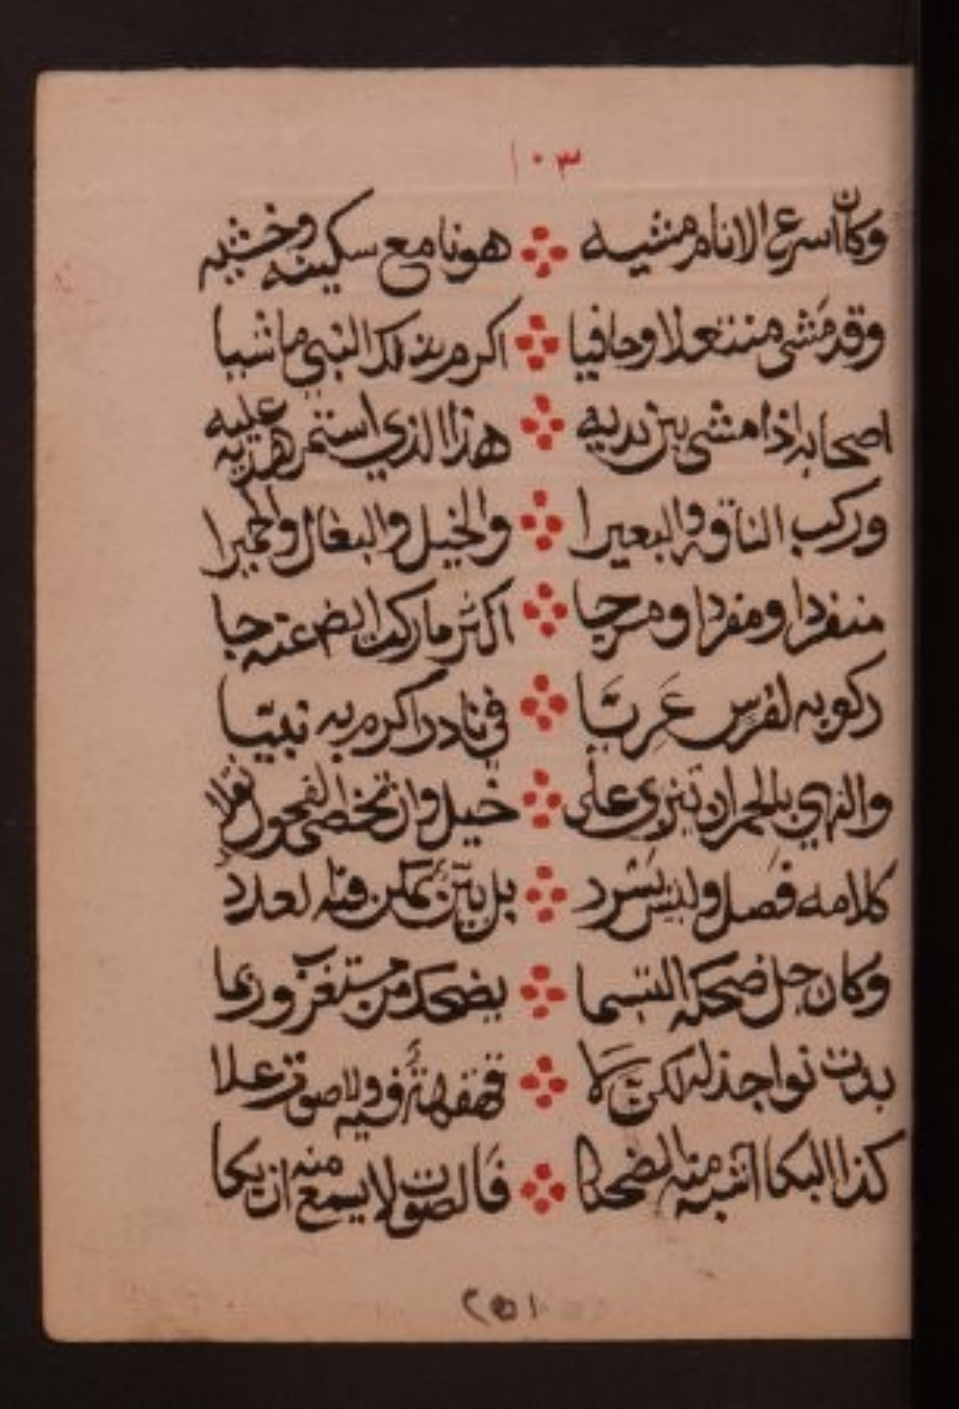 ١٠٣
وكان اسرع الانام مشيه هونا مع سكينه وخشيه
وقد مَشى منتعلا وحافيا اكرم بذلك النبي ماشيا
اصحابه اذا مشى بين يديه هذا الذي استمر هديه عليه
وركب الناقه والبعيرا والخيل والبغال والحميرا
منفردا ومفردا ومرجا اكثر ما ركب ايض عنه جا
ركوبه لفرس عَريّا في نادر اكرم به نبيّا
والنهي بالحمر ان تنزى على خيل وان تخصى الفحول نقلا
كلامه فَصل وليس يَسْرد بل بيّن يمكن منه لعدد
وكان جل ضحكه التبسما يضحك من مستغرب وربما
بدت نواجذ له لكن بَلا قهقهةٌ وفيه لا صوت علا
كذا البكا اشبه منه الضحكا فَالصوت لا يسمع منه ان بكا